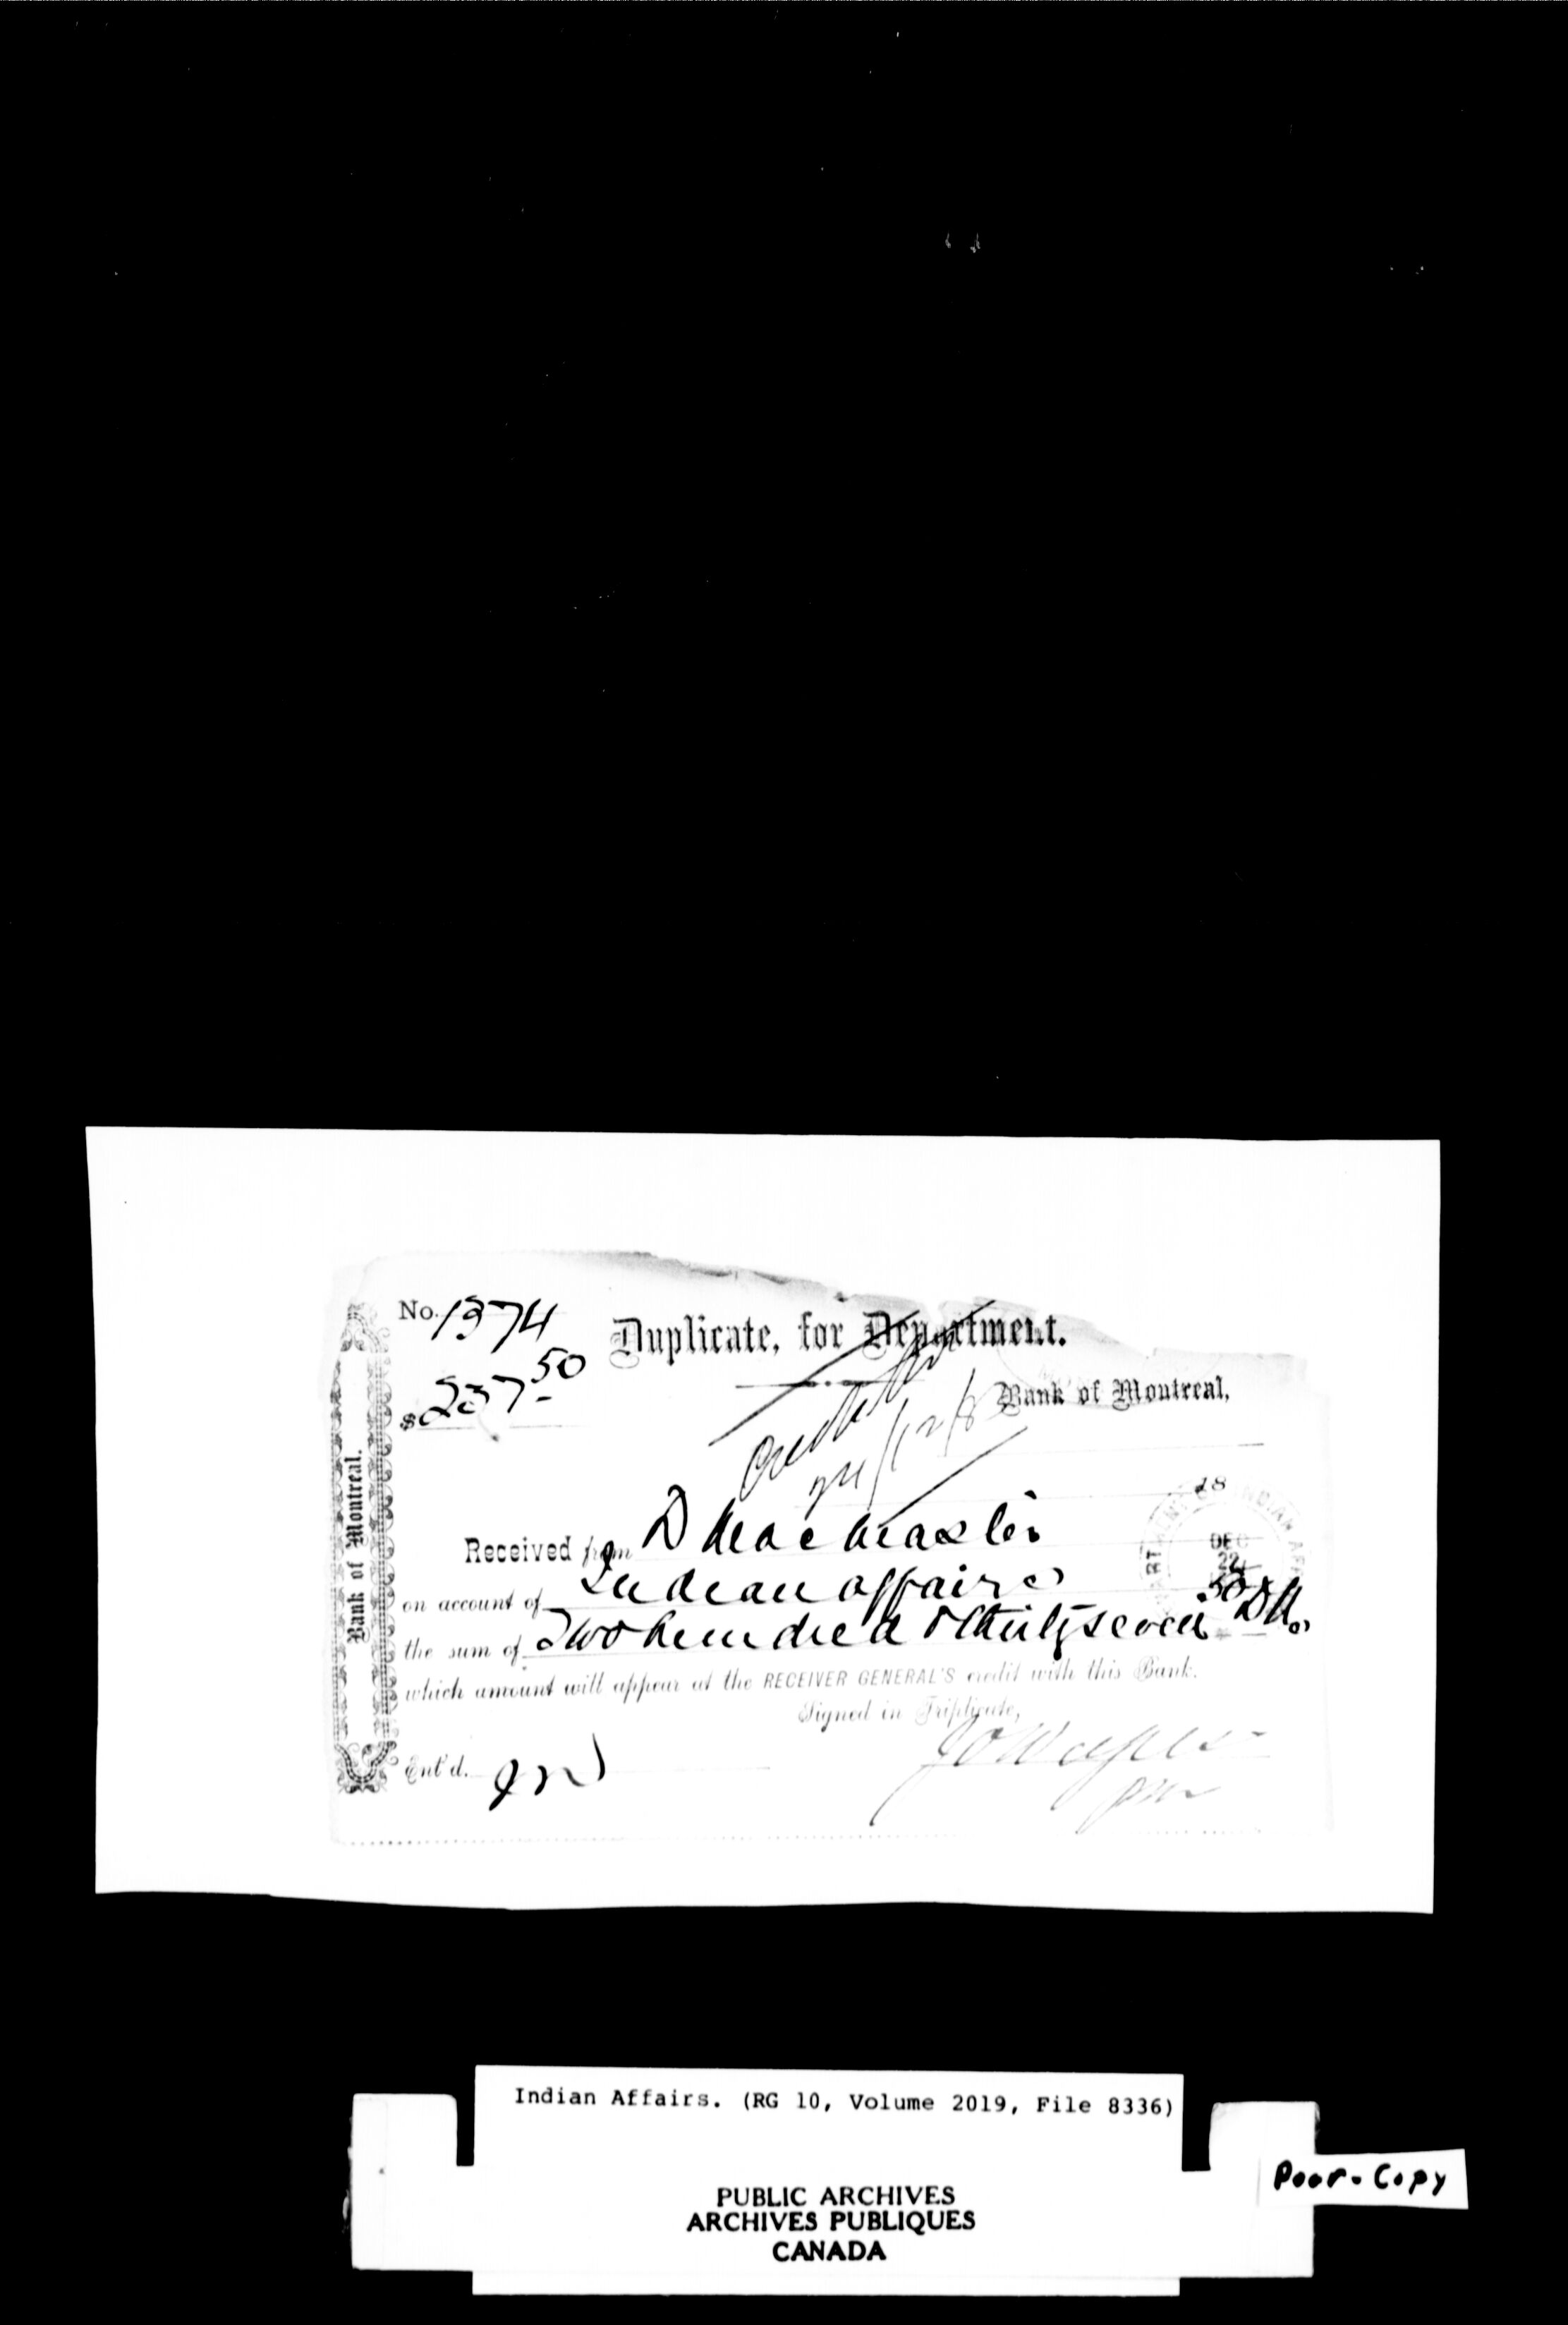 No. 1374
Duplicate, for Department.
$ 237 50
Bank of Montreal,
18
Bank of Montreal.
Received from D MacMaster
on account of Indian affairs
DEC
22
the sum of Two hundred & thirty seven 50 Dlls
which amount will appear at the RECEIVER GENERAL'S credit with this Bank.
Signed in Triplicate,
Ent'd.
Indian Affairs. (RG 10, Volume 2019, File 8336)
Poor-Copy
PUBLIC ARCHIVES
ARCHIVES PUBLIQUES
CANADA